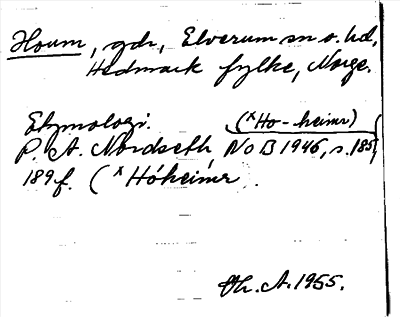 Houm, gdr, Elverum sn o. hd,
Hedmark fylke, Norge.
Etymologi. (*Ho-heimr)
P. A. Nordseth, NoB 1946, s. 185,
189 f. (*Hóheimr
Th. A. 1955.